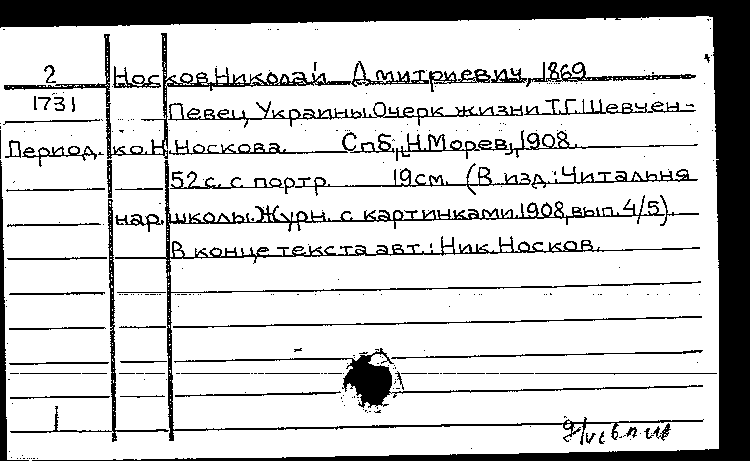 2 Носков, Николай Дмитриевич, 1869
1731 Певец Украины. Очерк жизни Т.Г. Шевчен-
Период. ко. Н. Носкова. Спб., "Н. Морев", 1908.
52 с. с портр. 19 см. (В изд.: Читальня
нар. школы. Журн. с картинками. 1908, вып. 4/5).
В конце текста авт.: Ник. Носков.